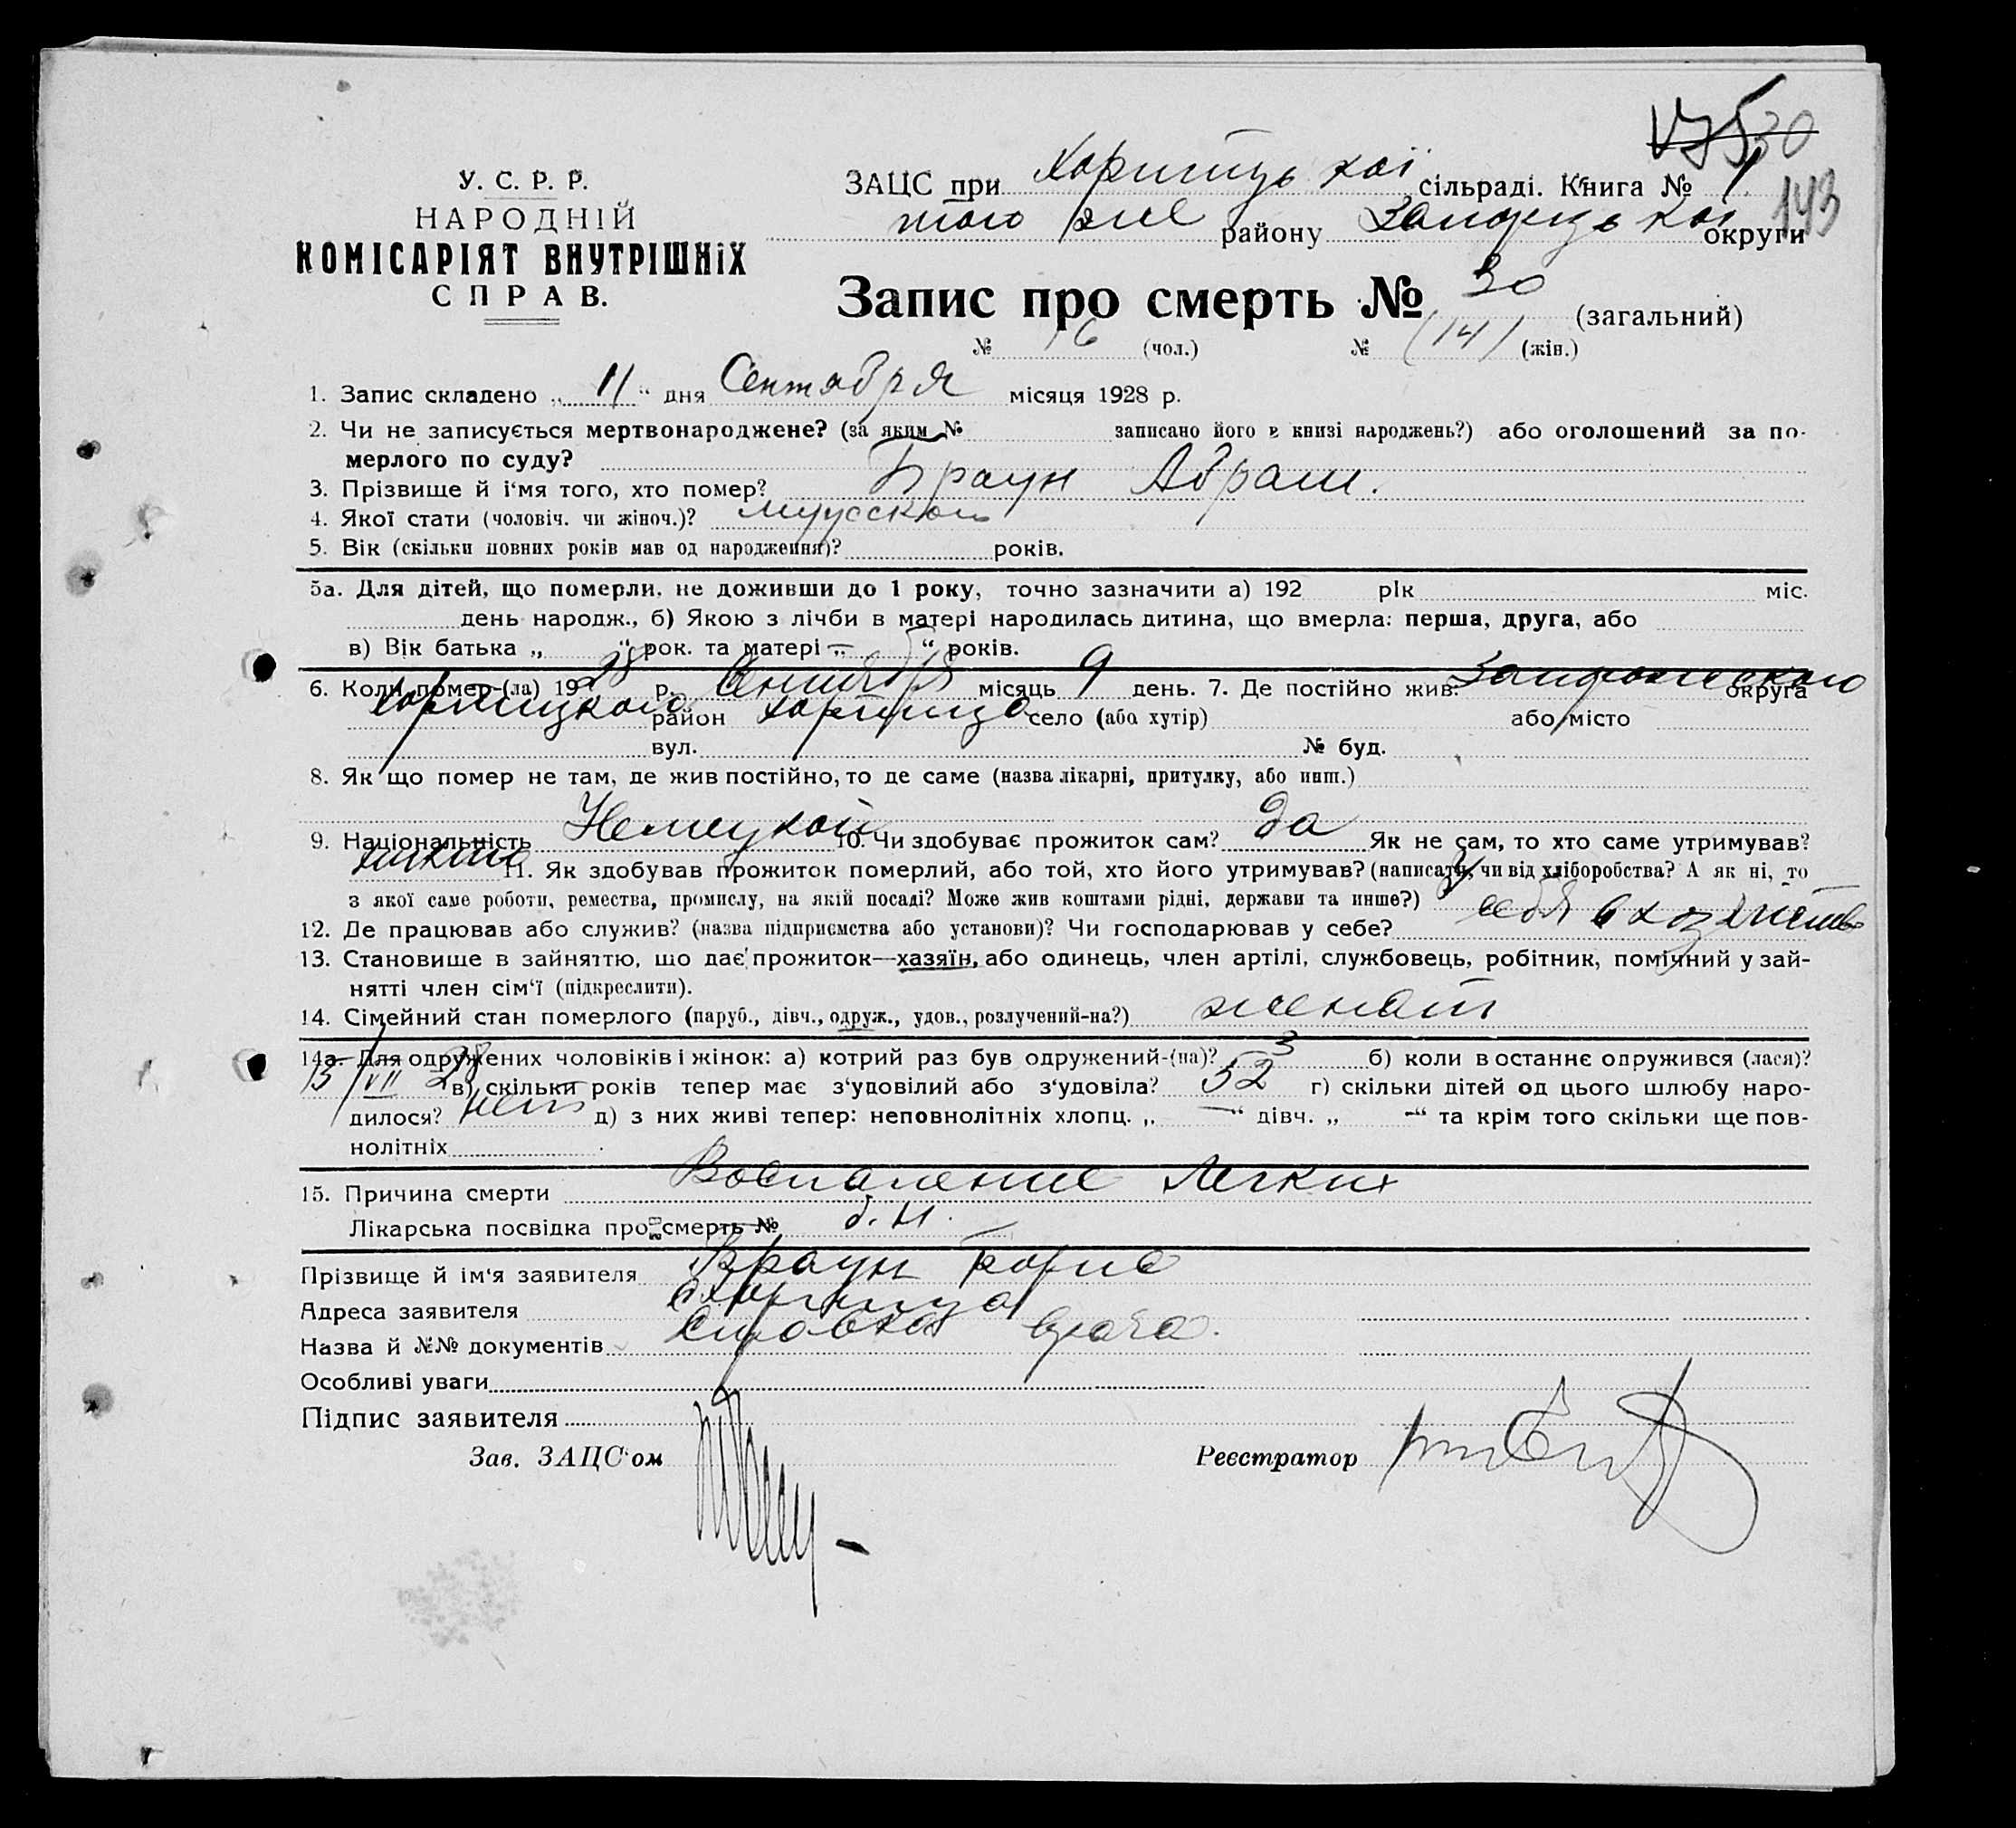 30
143
У. С. Р. Р.
НАРОДНІЙ
КОМІСАРІЯТ ВНУТРІШНіХ
СПРАВ.
ЗАЦС при Хортицької сільраді. Книга № 1
того же району Запорізької округи
Запис про смерть № 30 (загальний)
№ 16 (чол.) № (14) (жін.)
1. Запис складено „ 11 “ дня Сентября місяця 1928 р.
2. Чи не записується мертвонароджене? (за яким № записано його в книзі народжень?) або оголошений за по-
мерлого по суду?
3. Прізвище й і'мя того, хто помер? Браун Абрам.
4. Якої стати (чоловіч. чи жіноч.)?
5. Вік (скільки повних років мав од народження)? років.
5а. Для дітей, що померли, не доживши до 1 року, точно зазначити а) 192 рік міс.
день народж., б) Якою з лічби в матері народилась дитина, що вмерла: перша, друга, або
в) Вік батька „ “ рок. та матері „ “ років.
6. Коли помер-(ла) 1928 р. Сентября місяць 9 день. 7. Де постійно жив: округа
район Хортица село (або хутір) або місто
вул. № буд.
8. Як що помер не там, де жив постійно, то де саме (назва лікарні, притулку, або инш.)
9. Національність Немецкой 10. Чи здобуває прожиток сам? да Як не сам, то хто саме утримував?
11. Як здобував прожиток померлий, або той, хто його утримував? (написати, чи від хліборобства? А як ні, то
з якої саме роботи, ремества, промислу, на якій посаді? Може жив коштами рідні, держави та инше?) у
12. Де працював або служив? (назва підприємства або установи)? Чи господарював у себе? себя в хозяйстве
13. Становище в зайняттю, що дає прожиток—хазяїн, або одинець, член артілі, службовець, робітник, помічний у зай-
нятті член сім‘ї (підкреслити).
14. Сімейний стан померлого (паруб., дівч., одруж., удов., розлучений-на?) женат
14а. Для одружених чоловіків і жінок: а) котрий раз був одружений-(на)? 3 б) коли востаннє одружився (лася)?
15/VII 28 в) скільки років тепер має з‘удовілий або з‘удовіла? 52 г) скільки дітей од цього шлюбу наро-
дилося? нет д) з них живі тепер: неповнолітніх хлопц. „ — “ дівч. „ — “ та крім того скільки ще пов-
нолітніх
15. Причина смерти Воспаление Легких
Лікарська посвідка про смерть № б. н.
Прізвище й ім'я заявителя Браун
Адреса заявителя Хортица
Назва й №№ документів врача.
Особливі уваги
Підпис заявителя
Зав. ЗАЦС'ом Реєстратор